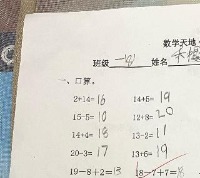 数学天地
班级 一 姓名
一、口算。
2+14=16 14+5=19
15-5=10 12+8=20
14+4=18 13-2=11
20-3=17 13+6=19
19-8+2=13 18-7+7=